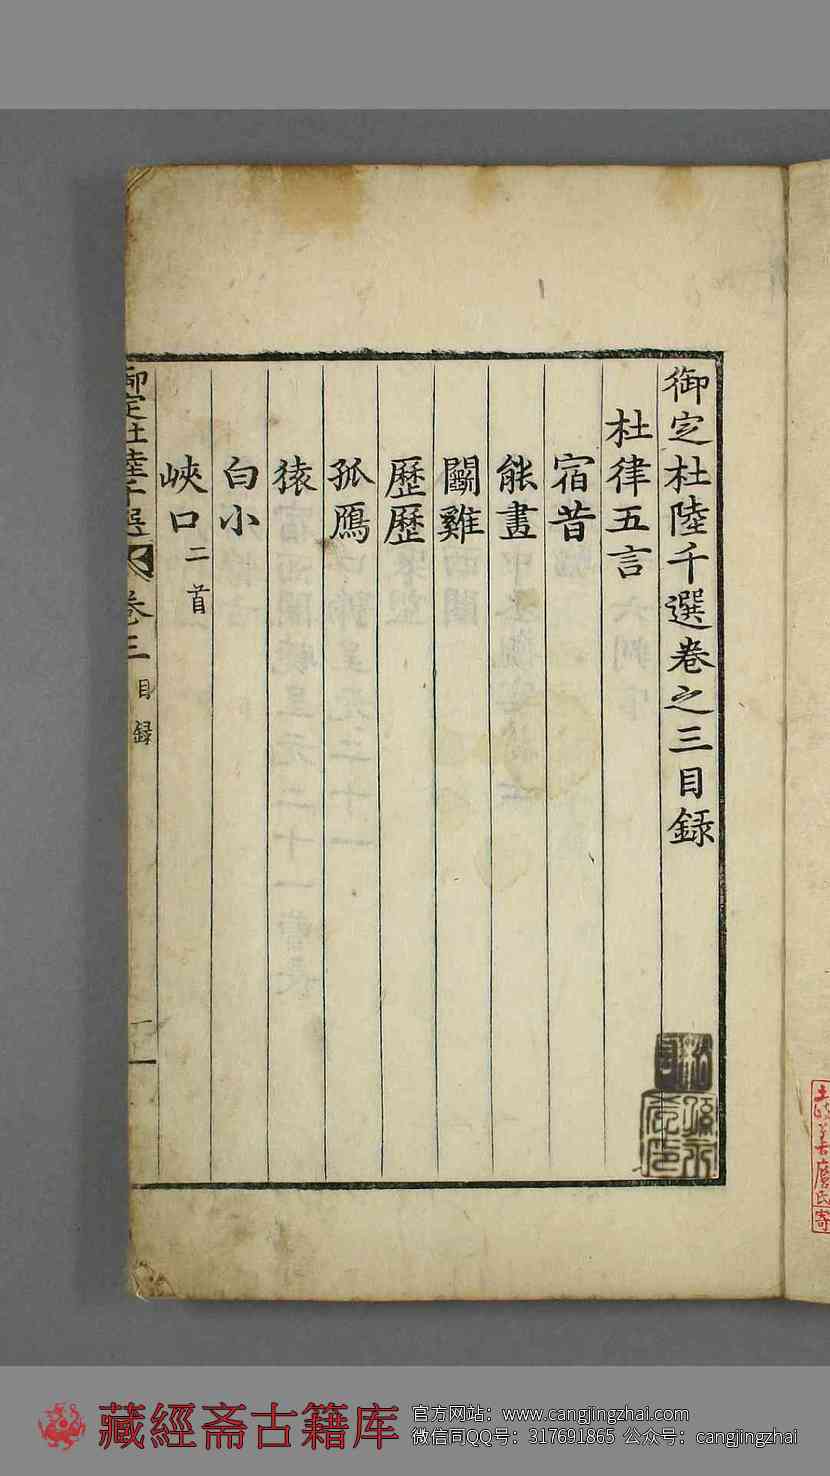 御定杜陸千選卷之三目錄
杜律五言
宿昔
能畫
鬪雞
歷歷
孤鴈
猿
白小
峽口二首
御定杜陸千選 卷三 目錄 一
藏經斋古籍库
官方网站：www.cangjingzhai.com
微信同QQ号：317691865 公众号：cangjingzhai